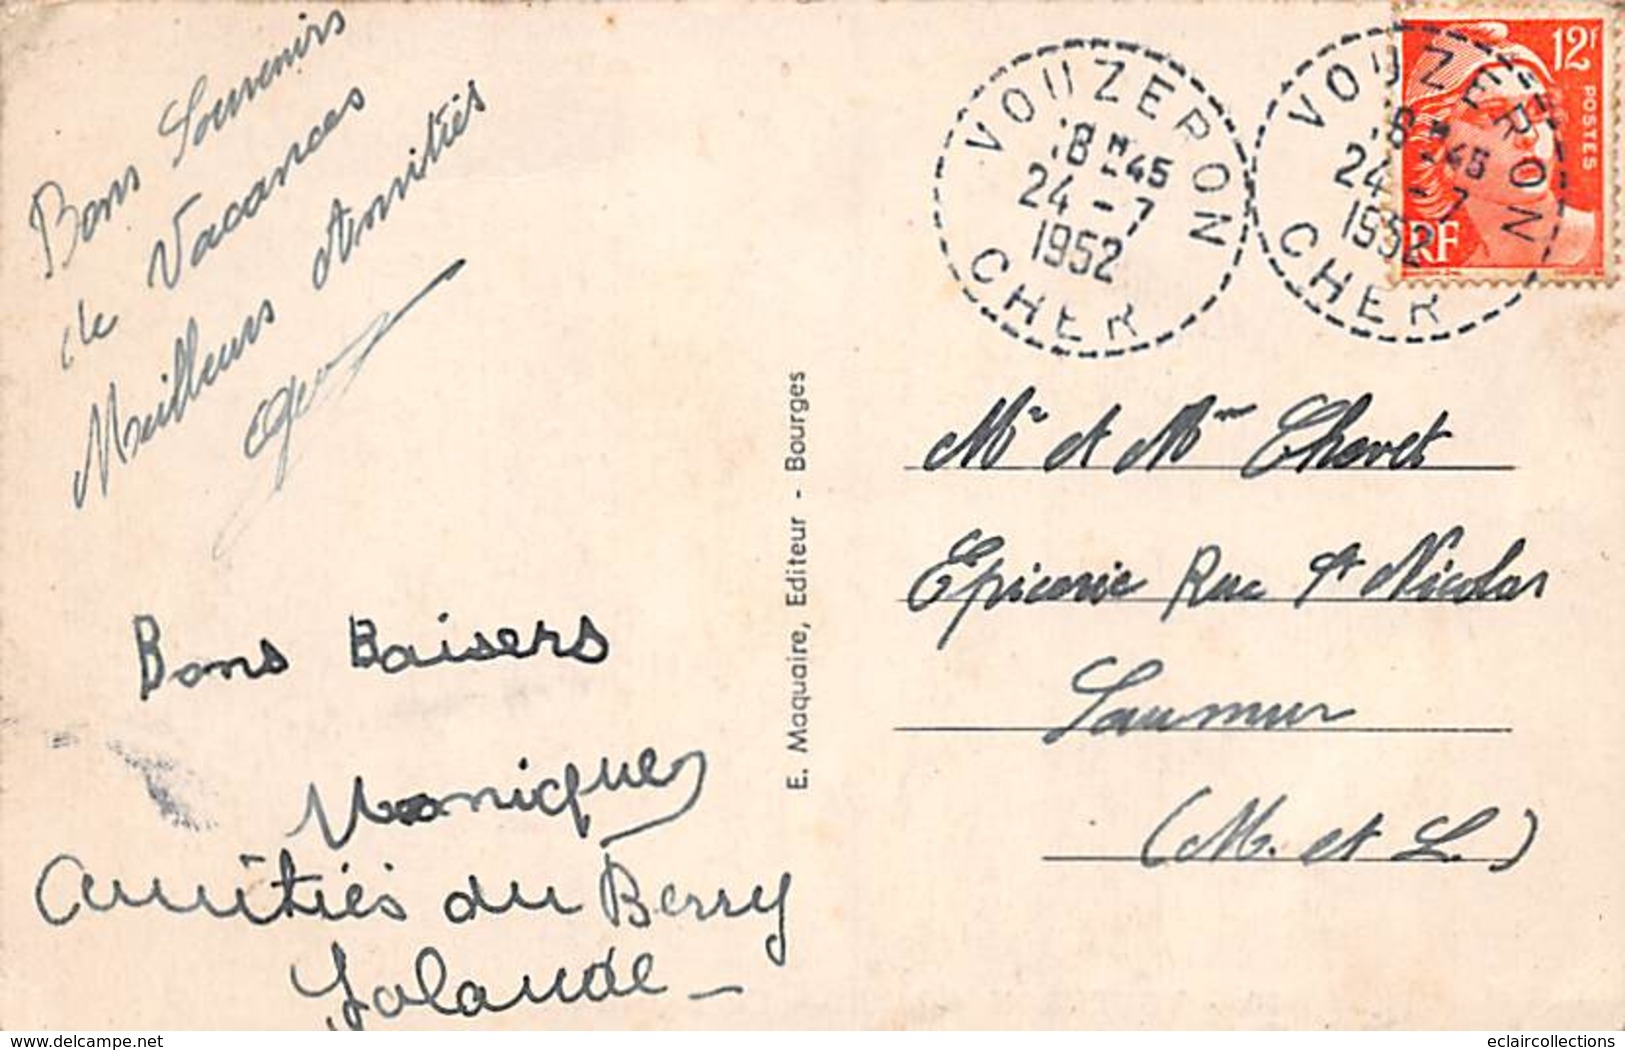 Bons Souvenirs
de Vacances
Meilleurs Amitiés
Bons Baisers
Monique
Amitiés du Berry
Yolande
E. Maquaire, Editeur - Bourges
VOUZERON
8H45
24-7
1952
CHER
VOUZERON
8H45
24-7
1952
CHER
12F
POSTES
RF
Mr et Mme
Epicerie Rue St Nicolas
Saumur
(M. et L.)
delcampe.net
eclaircollections